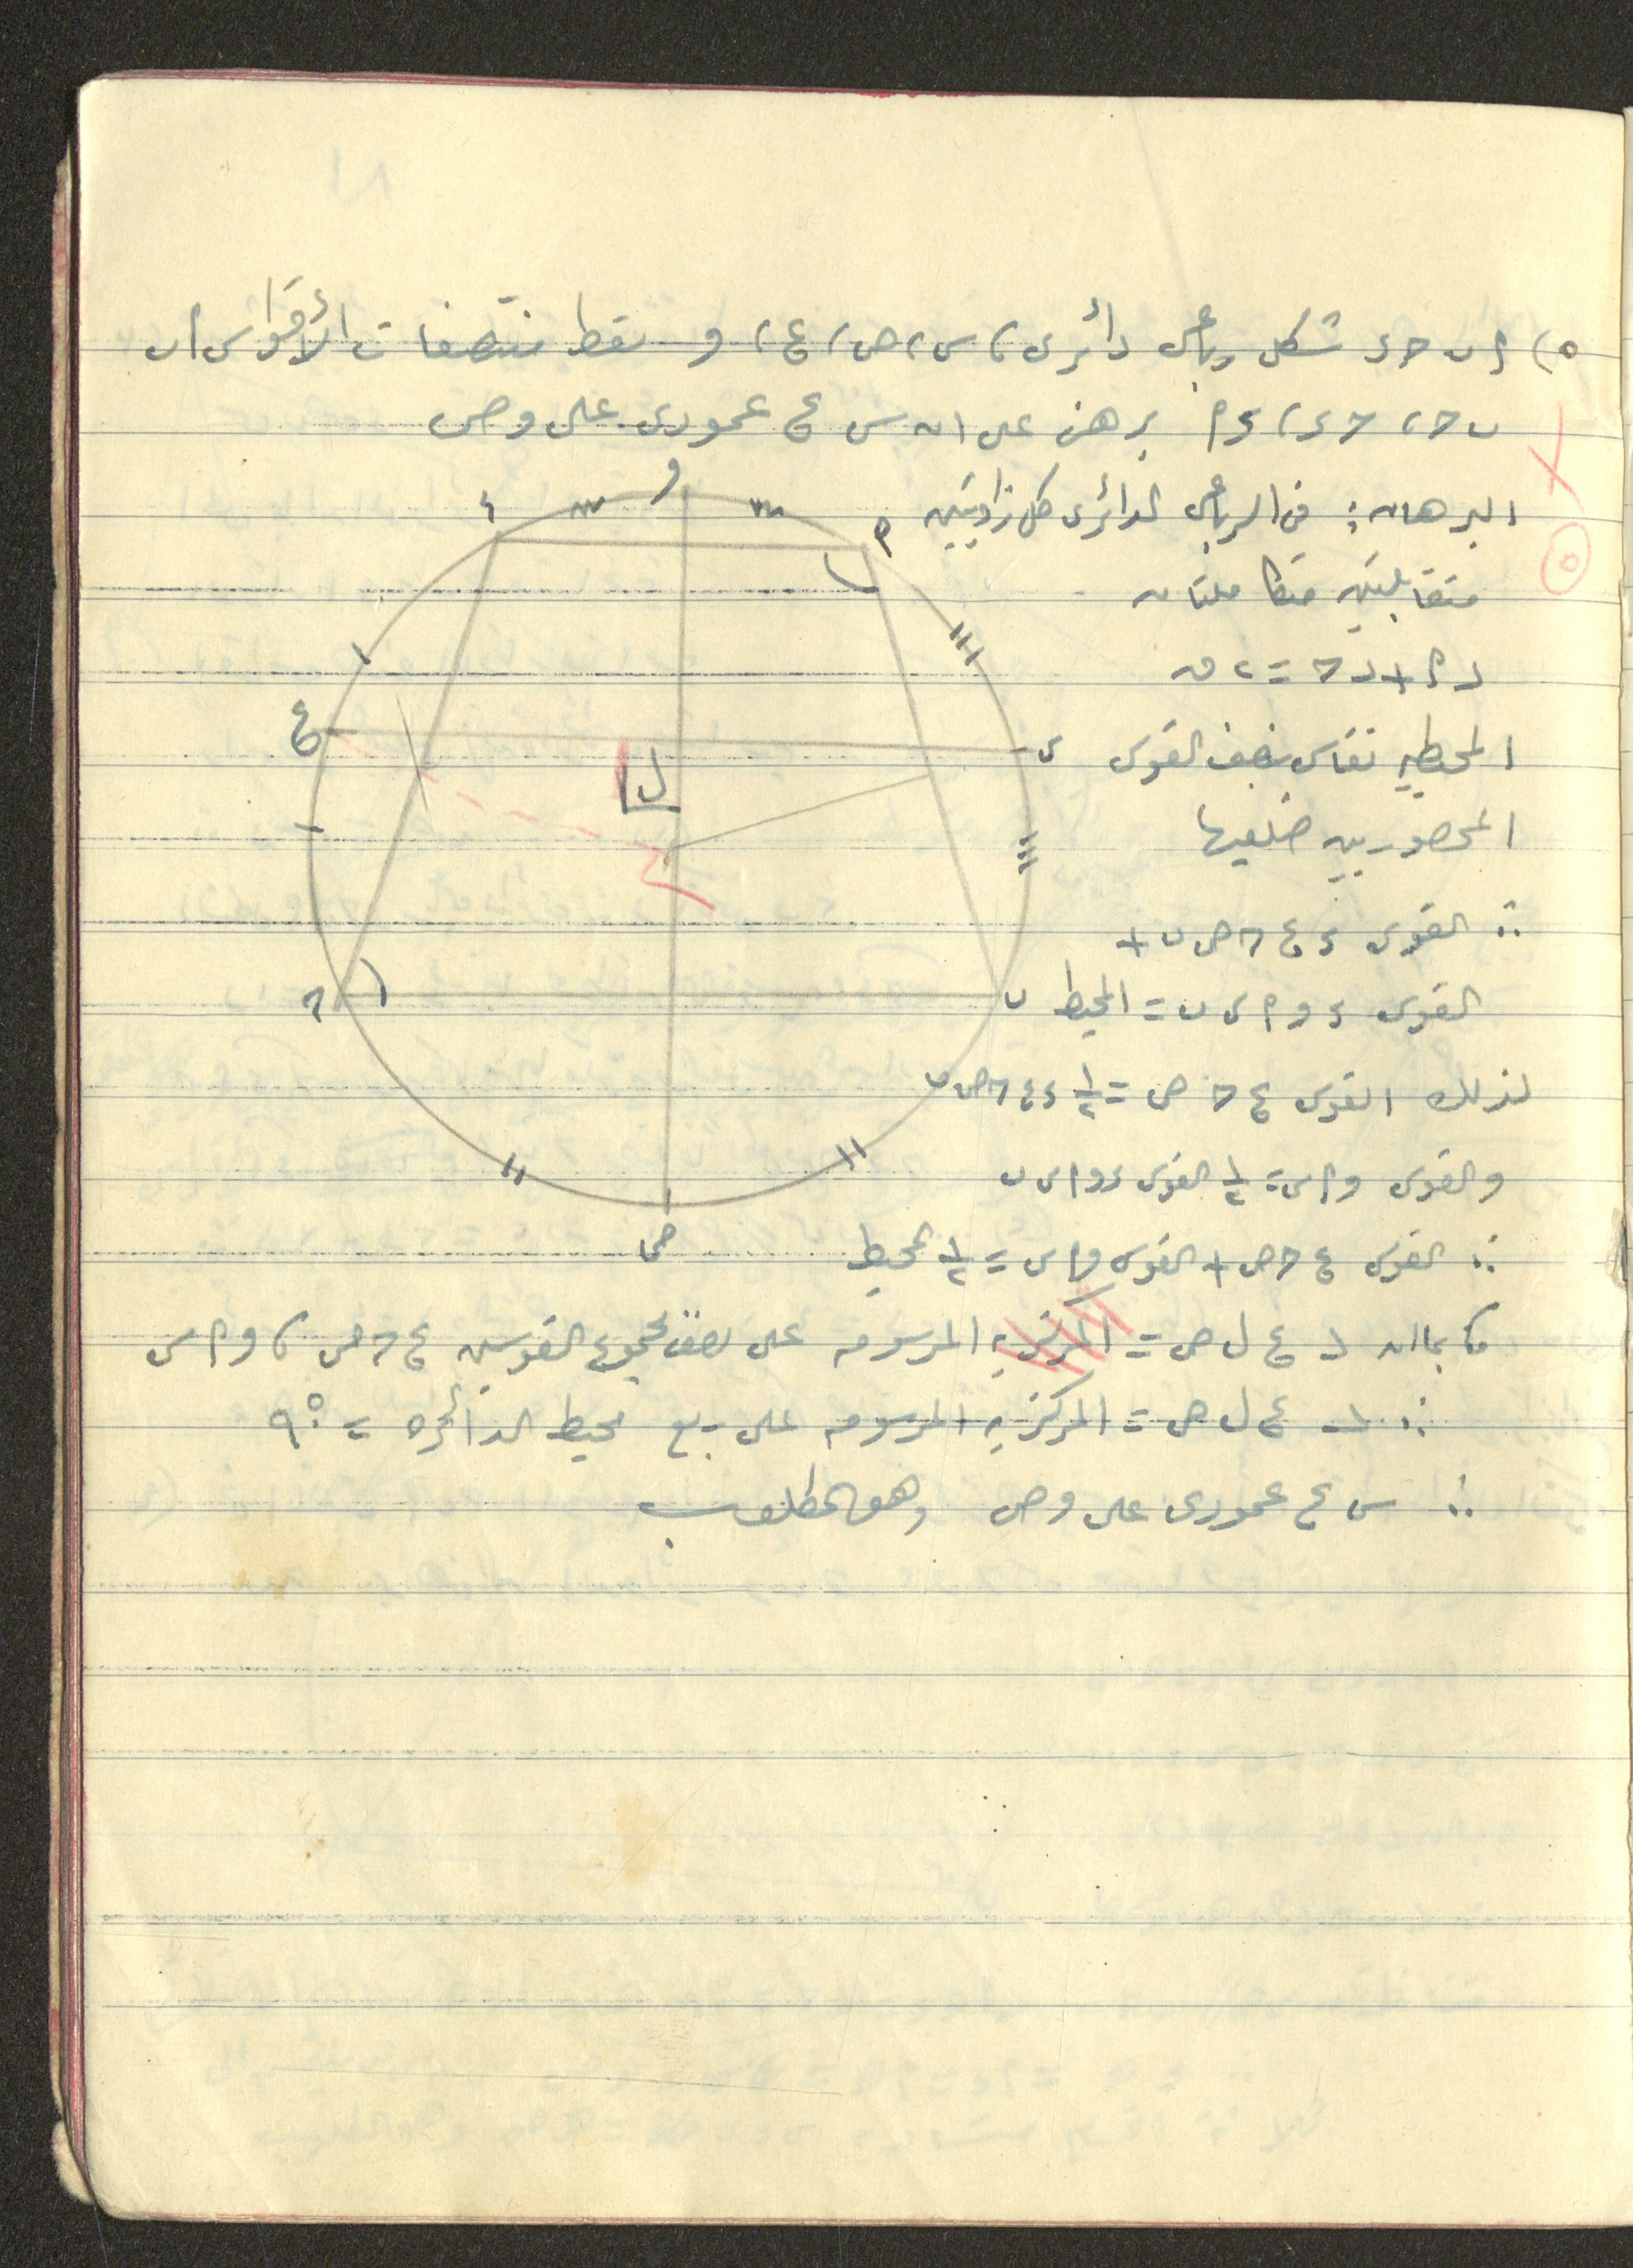 ٥) ٢ ب حـ ء شكل رباعى دائرى ، س ، ص ، ع ، و نقط منتصفات الأقواس ٢ ب
ب حـ ، حـ ء ، ء ٢ برهن على ان س ع عمودى على و ص
البرهان : فى الرباعى الدائرى كل زاويتين
متقابلتين متكاملتان
د ٢ + د حـ = ٢ ن
المحيطيه تقاس بنصف القوس
المحصور بين ضلعيها
∴ القوس ء ع حـ ص ب +
القوس ء و ٢ س ب = المحيط
لذلك القوس ع حـ ص = ١/٢ ء ع حـ ص ب
والقوس و ٢ س = ١/٢ القوس ء و ٢ س ب
∴ القوس ع حـ ص + القوس و ٢ س = ١/٢ المحيط
، بما ان د ع ل ص = المركزيه المرسومه على نصف مجموع القوسين ع حـ ص ، و ٢ س
∴ د ع ل ص = المركزيه المرسومه على ربع محيط الدائره = ٩٠°
∴ س ع عمودى على و ص وهو المطلوب
و
ء
٢
ع
س
ل
حـ
ب
ص
٥